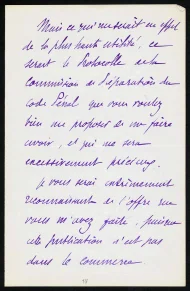 Mais ce qui me serait en effet
de la plus haute utilité, ce
serait le Protocolle de la
commission de préparation du
Code Pénal que vous voulez
bien me proposer de me faire
avoir, et qui me sera
excessivement précieux.
Je vous serai extrêmement
reconnaissant de l'offre que
vous m'avez faite, puisque
cette publication n'est pas
dans le commerce.